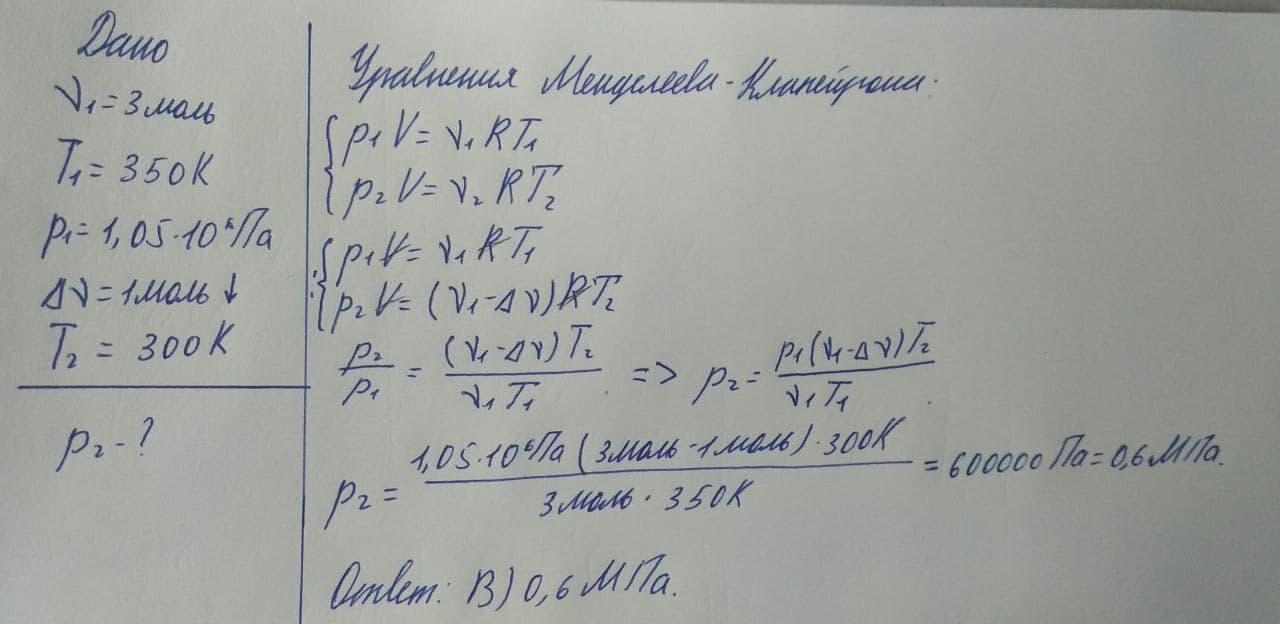 Дано
ν₁=3моль
T₁=350К
p₁=1,05·10⁶Па
Δν=1моль↓
T₂=300К
p₂-?
Уравнения Менделеева-Клапейрона:
p₁V=ν₁RT₁
p₂V=ν₂RT₂
p₁V=ν₁RT₁
p₂V=(ν₁-Δν)RT₂
p₂/p₁=(ν₁-Δν)T₂/ν₁T₁ => p₂=p₁(ν₁-Δν)T₂/ν₁T₁
p₂=1,05·10⁶Па(3моль-1моль)·300К/3моль·350К=600000Па=0,6МПа.
Ответ: В)0,6МПа.